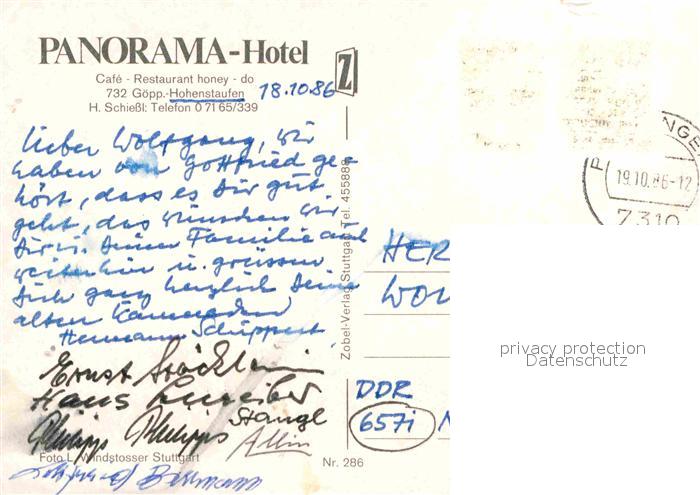 PANORAMA-Hotel
Café - Restaurant honey - do
732 Göpp.-Hohenstaufen
H. Schießl: Telefon 0 71 65/339
18.10.86
Lieber Wolfgang, wir
haben von Gottfried ge-
hört, dass es Dir gut
geht, das wünschen wir
Dir u. Deiner Familie auch
weiterhin u. grüssen
Dich ganz herzlich Deine
alten Kameraden
Hermann Schüppert
Ernst
Hans
Stangl
Philipps Philipps
Foto L. Windstosser Stuttgart
Nr. 286
Zobel-Verlag, Stuttgart, Tel. 455888
Z
19.10.86-12
7310
HER
WOL
DDR
6571
privacy protection
Datenschutz